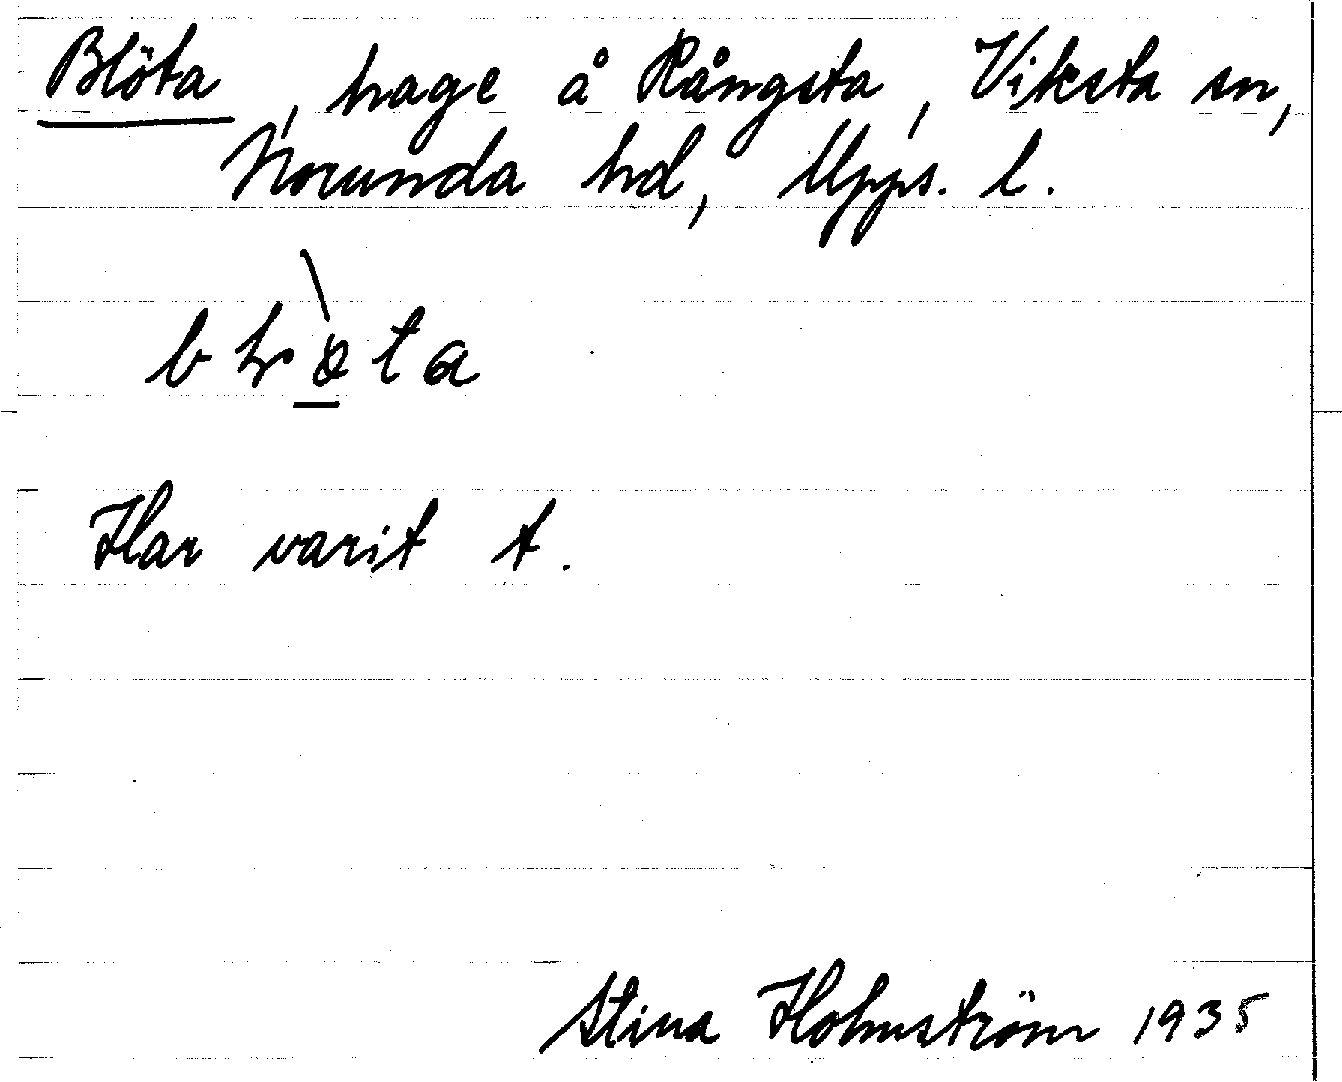 Blöta, hage å Rångsta, Viksta sn,
Norunda hd, Upps. l.
Har varit t.
Stina Holmström 1935